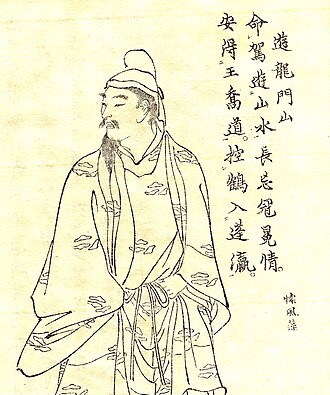 遊龍門山
命駕遊山水。長忘冠冕情。
安得王喬道。控鶴入蓬瀛。
懐風藻